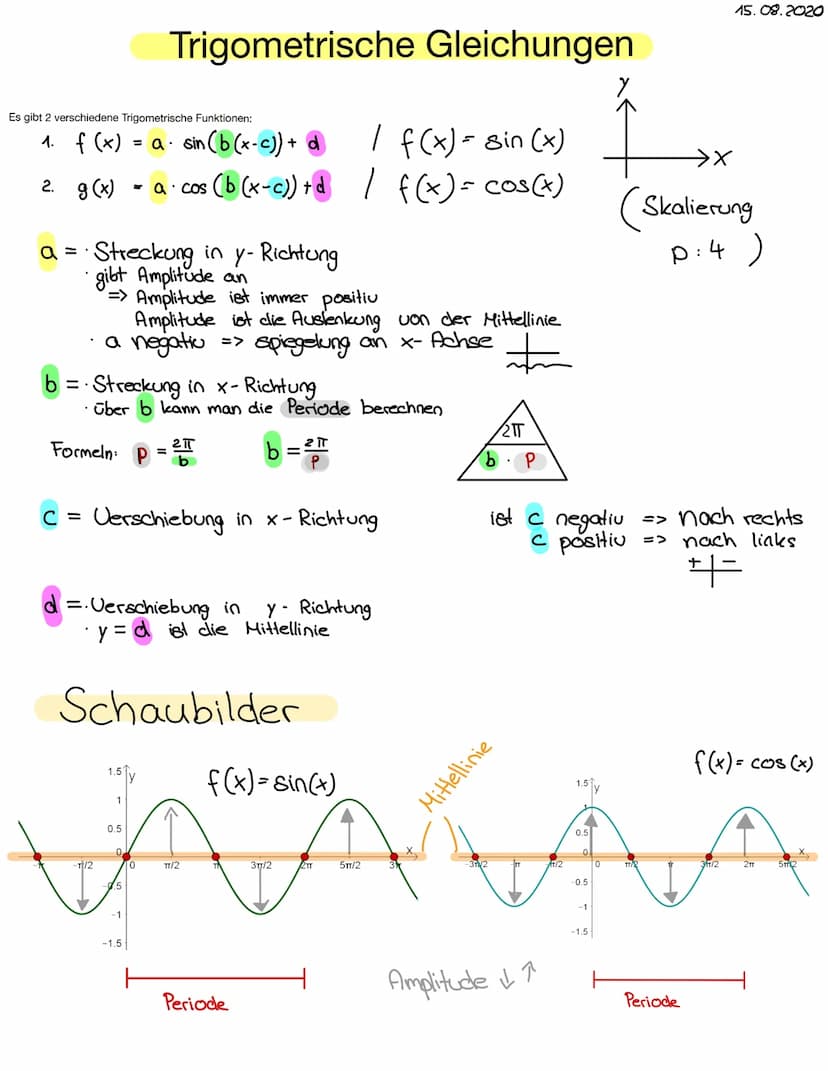 15.08.2020
Trigometrische Gleichungen
Es gibt 2 verschiedene Trigometrische Funktionen:
1. f(x) = a · sin(b(x-c)) + d / f(x) = sin(x)
2. g(x) = a · cos(b(x-c)) + d / f(x) = cos(x)
y
x
(Skalierung
p:4)
a = · Streckung in y-Richtung
· gibt Amplitude an
=> Amplitude ist immer positiv
Amplitude ist die Auslenkung von der Mittellinie
· a negativ => spiegelung an x-Achse
b = · Streckung in x-Richtung
· über b kann man die Periode berechnen
Formeln: p = 2π/b b = 2π/p
2π
b · p
c = Verschiebung in x-Richtung
ist c negativ => nach rechts
c positiv => nach links
+ −
d = · Verschiebung in y-Richtung
· y = d ist die Mittellinie
Schaubilder
f(x) = sin(x)
Mittellinie
f(x) = cos(x)
1.5 y
1
0.5
0
-π -π/2 0 π/2 π 3π/2 2π 5π/2 3π x
-0.5
-1
-1.5
1.5 y
1
0.5
0
-3π/2 -π -π/2 0 π/2 π 3π/2 2π 5π/2 x
-0.5
-1
-1.5
Amplitude ↓↑
Periode
Periode